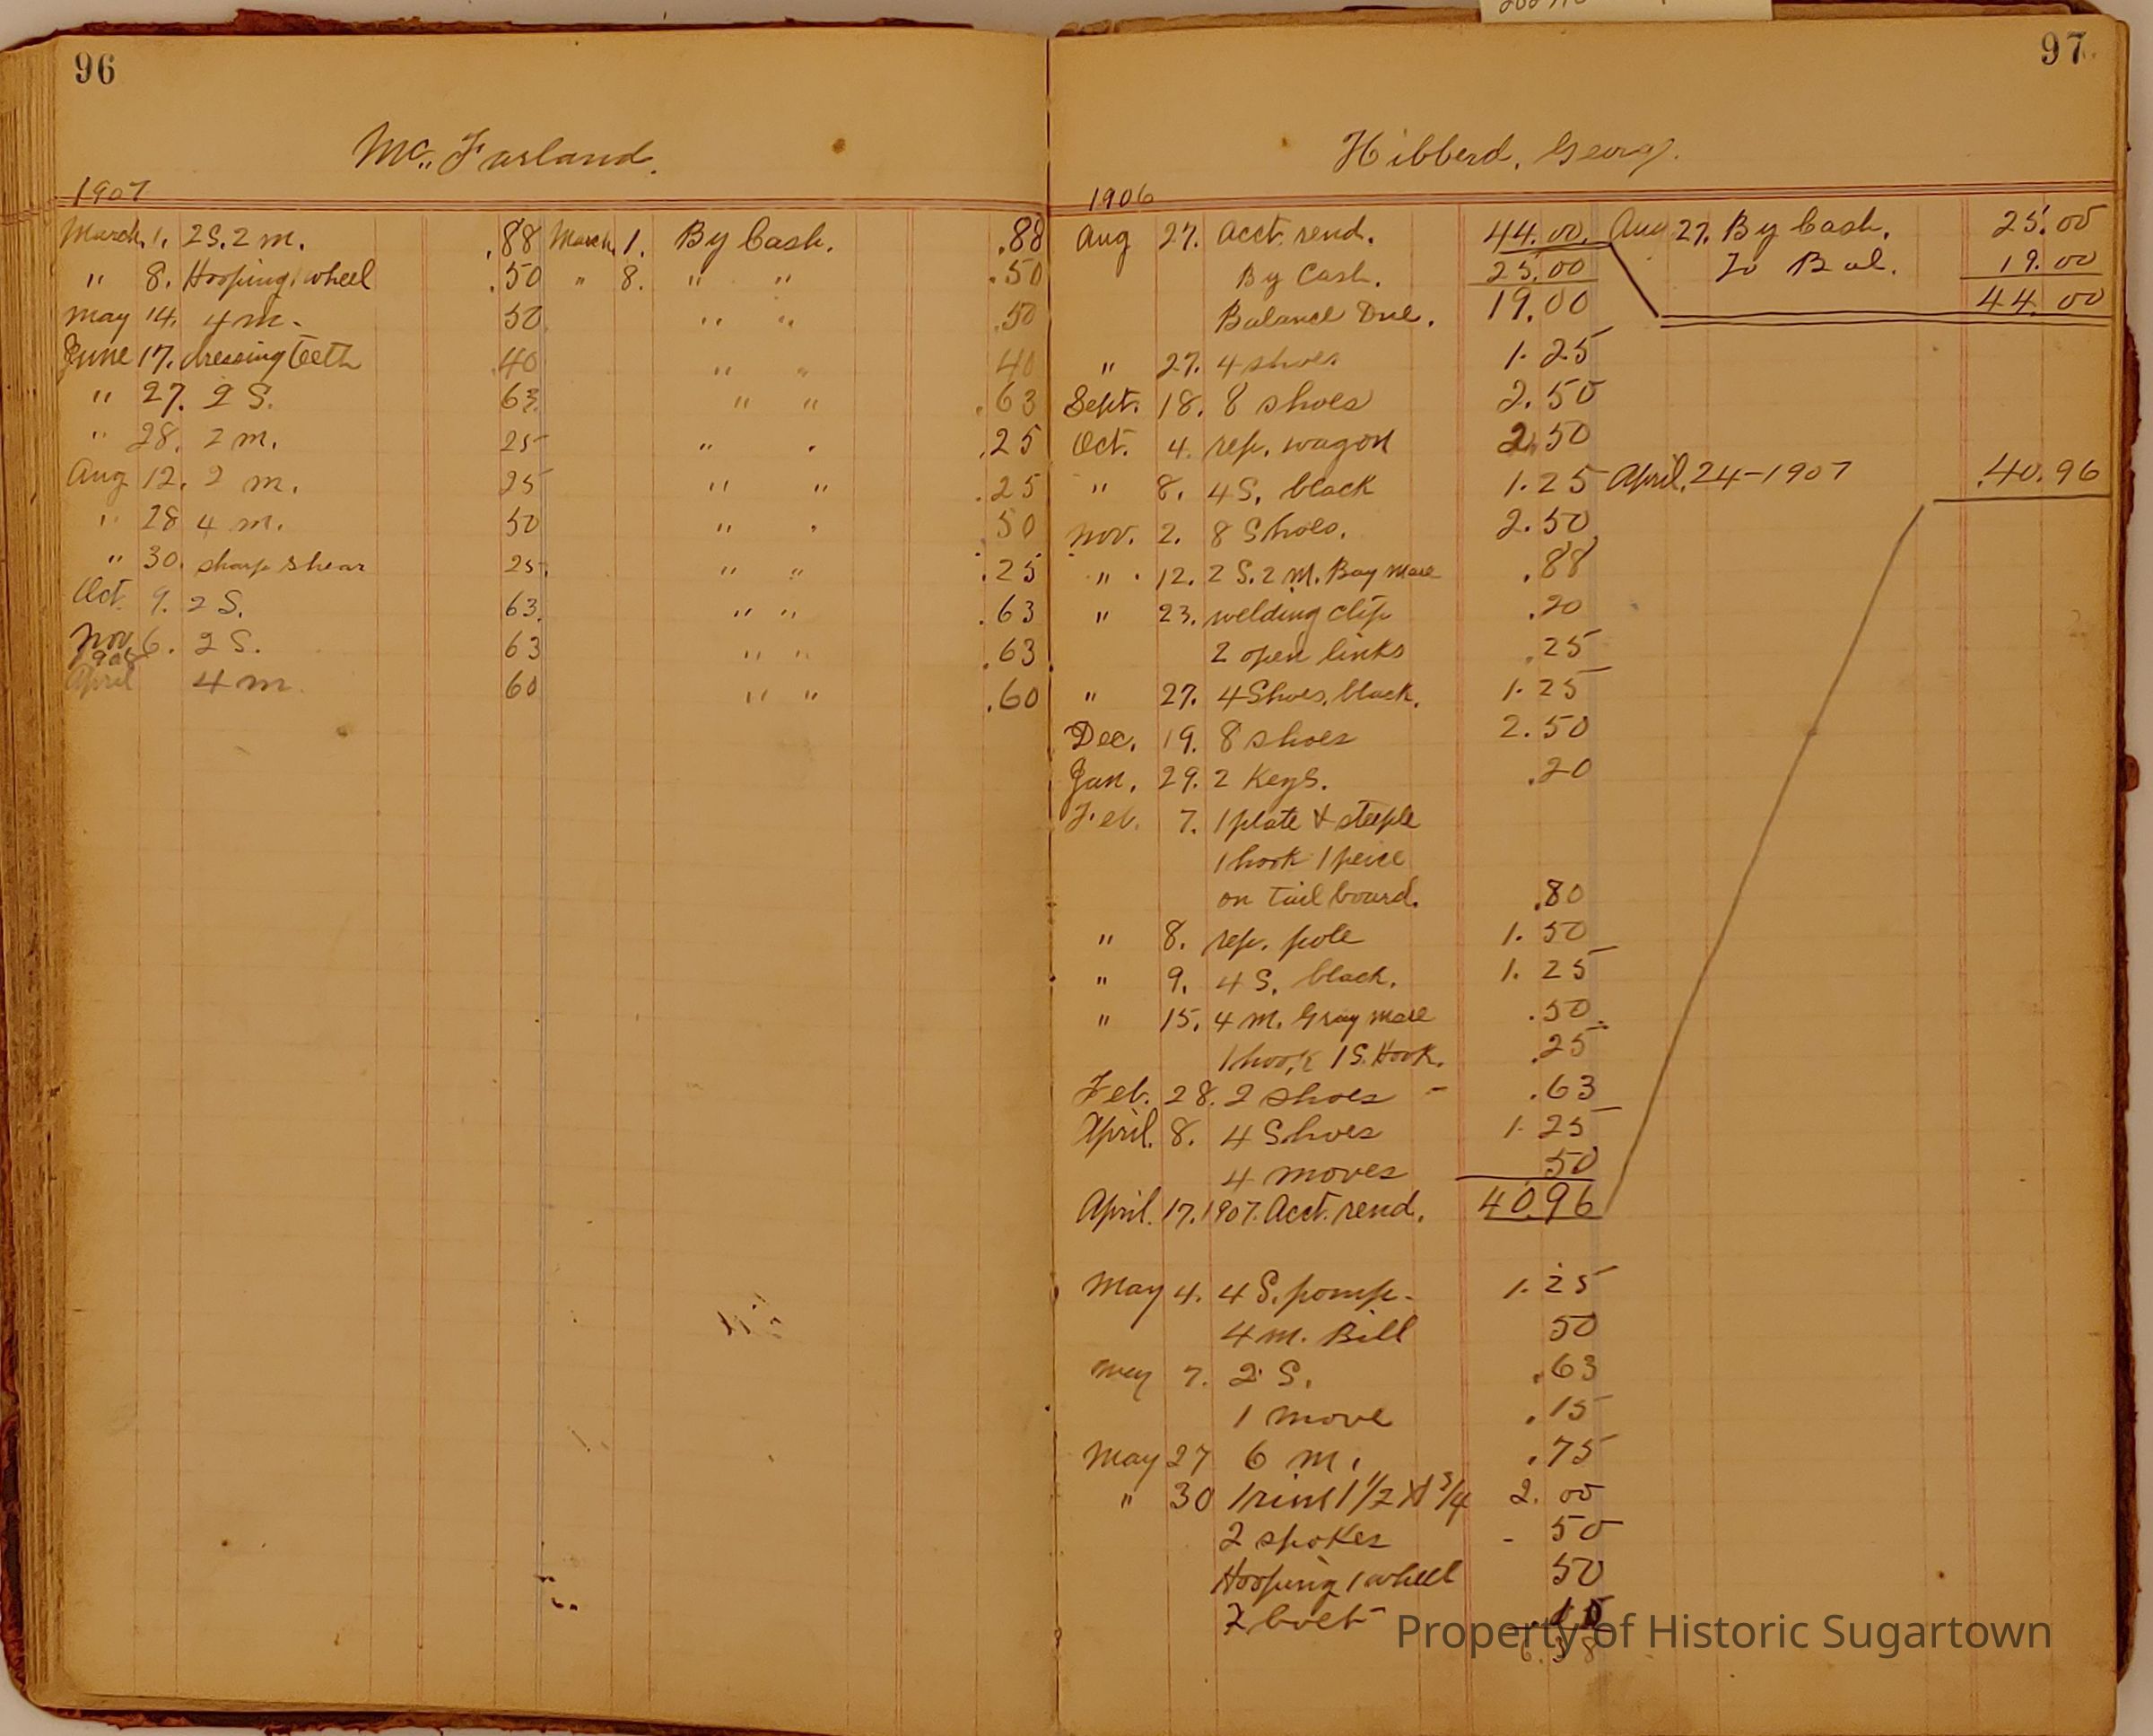 96
Mc,, Farland.
1907
March. 1. 2S. 2 m. .88 March 1. By Cash. .88
" 8. Hooping 1 wheel .50 " 8. " " .50
May 14. 4 m. 50 " " .50
June 17. dressing teeth 40 " " 40
" 27. 2 S. 63 " " .63
" 28. 2 m. 25 " " .25
Aug 12. 2 m. 25 " " .25
" 28 4 m. 50 " " 50
" 30. sharp shear 25. " " .25
Oct. 9. 2 S. 63. " " .63
Nov. 6. 2 S. 63 " " .63
1908
April 4 m. 60 " " .60
97
Hibberd, George.
1906
Aug 27. Acct. rend. 44.00. Aug 27. By Cash. 25.00
By Cash. 25.00 To Bal. 19.00
Balance Due. 19.00 44.00
" 27. 4 shoes 1.25
Sept. 18. 8 shoes 2.50
Oct. 4. rep. wagon 2.50
" 8. 4 S. black 1.25 April. 24-1907 .40.96
Nov. 2. 8 Shoes. 2.50
" 12. 2 S. 2 m. Bay Mare .88
" 23. welding clip .20
2 open links .25
" 27. 4 Shoes, black. 1.25
Dec. 19. 8 shoes 2.50
Jan. 29. 2 Keys. .20
Feb. 7. 1 plate & steeple
1 hook 1 peice
on tail board. .80
" 8. rep. pole 1.50
" 9. 4 S. black. 1.25
" 15. 4 m. Gray mare .50
1 hook 1 S. Hook. .25
Feb. 28. 2 shoes - .63
April. 8. 4 Shoes 1.25
4 moves 50
April. 17. 1907. Acct. rend. 40.96
May 4. 4 S. pomp. 1.25
4 m. Bill 50
May 7. 2 S. .63
1 move .15
May 27 6 m. .75
" 30 1 rim 1 1/2 x 1 3/4 2.00
2 spokes - 50
Hooping 1 wheel 50
2 bolt .10
6.38
Property of Historic Sugartown